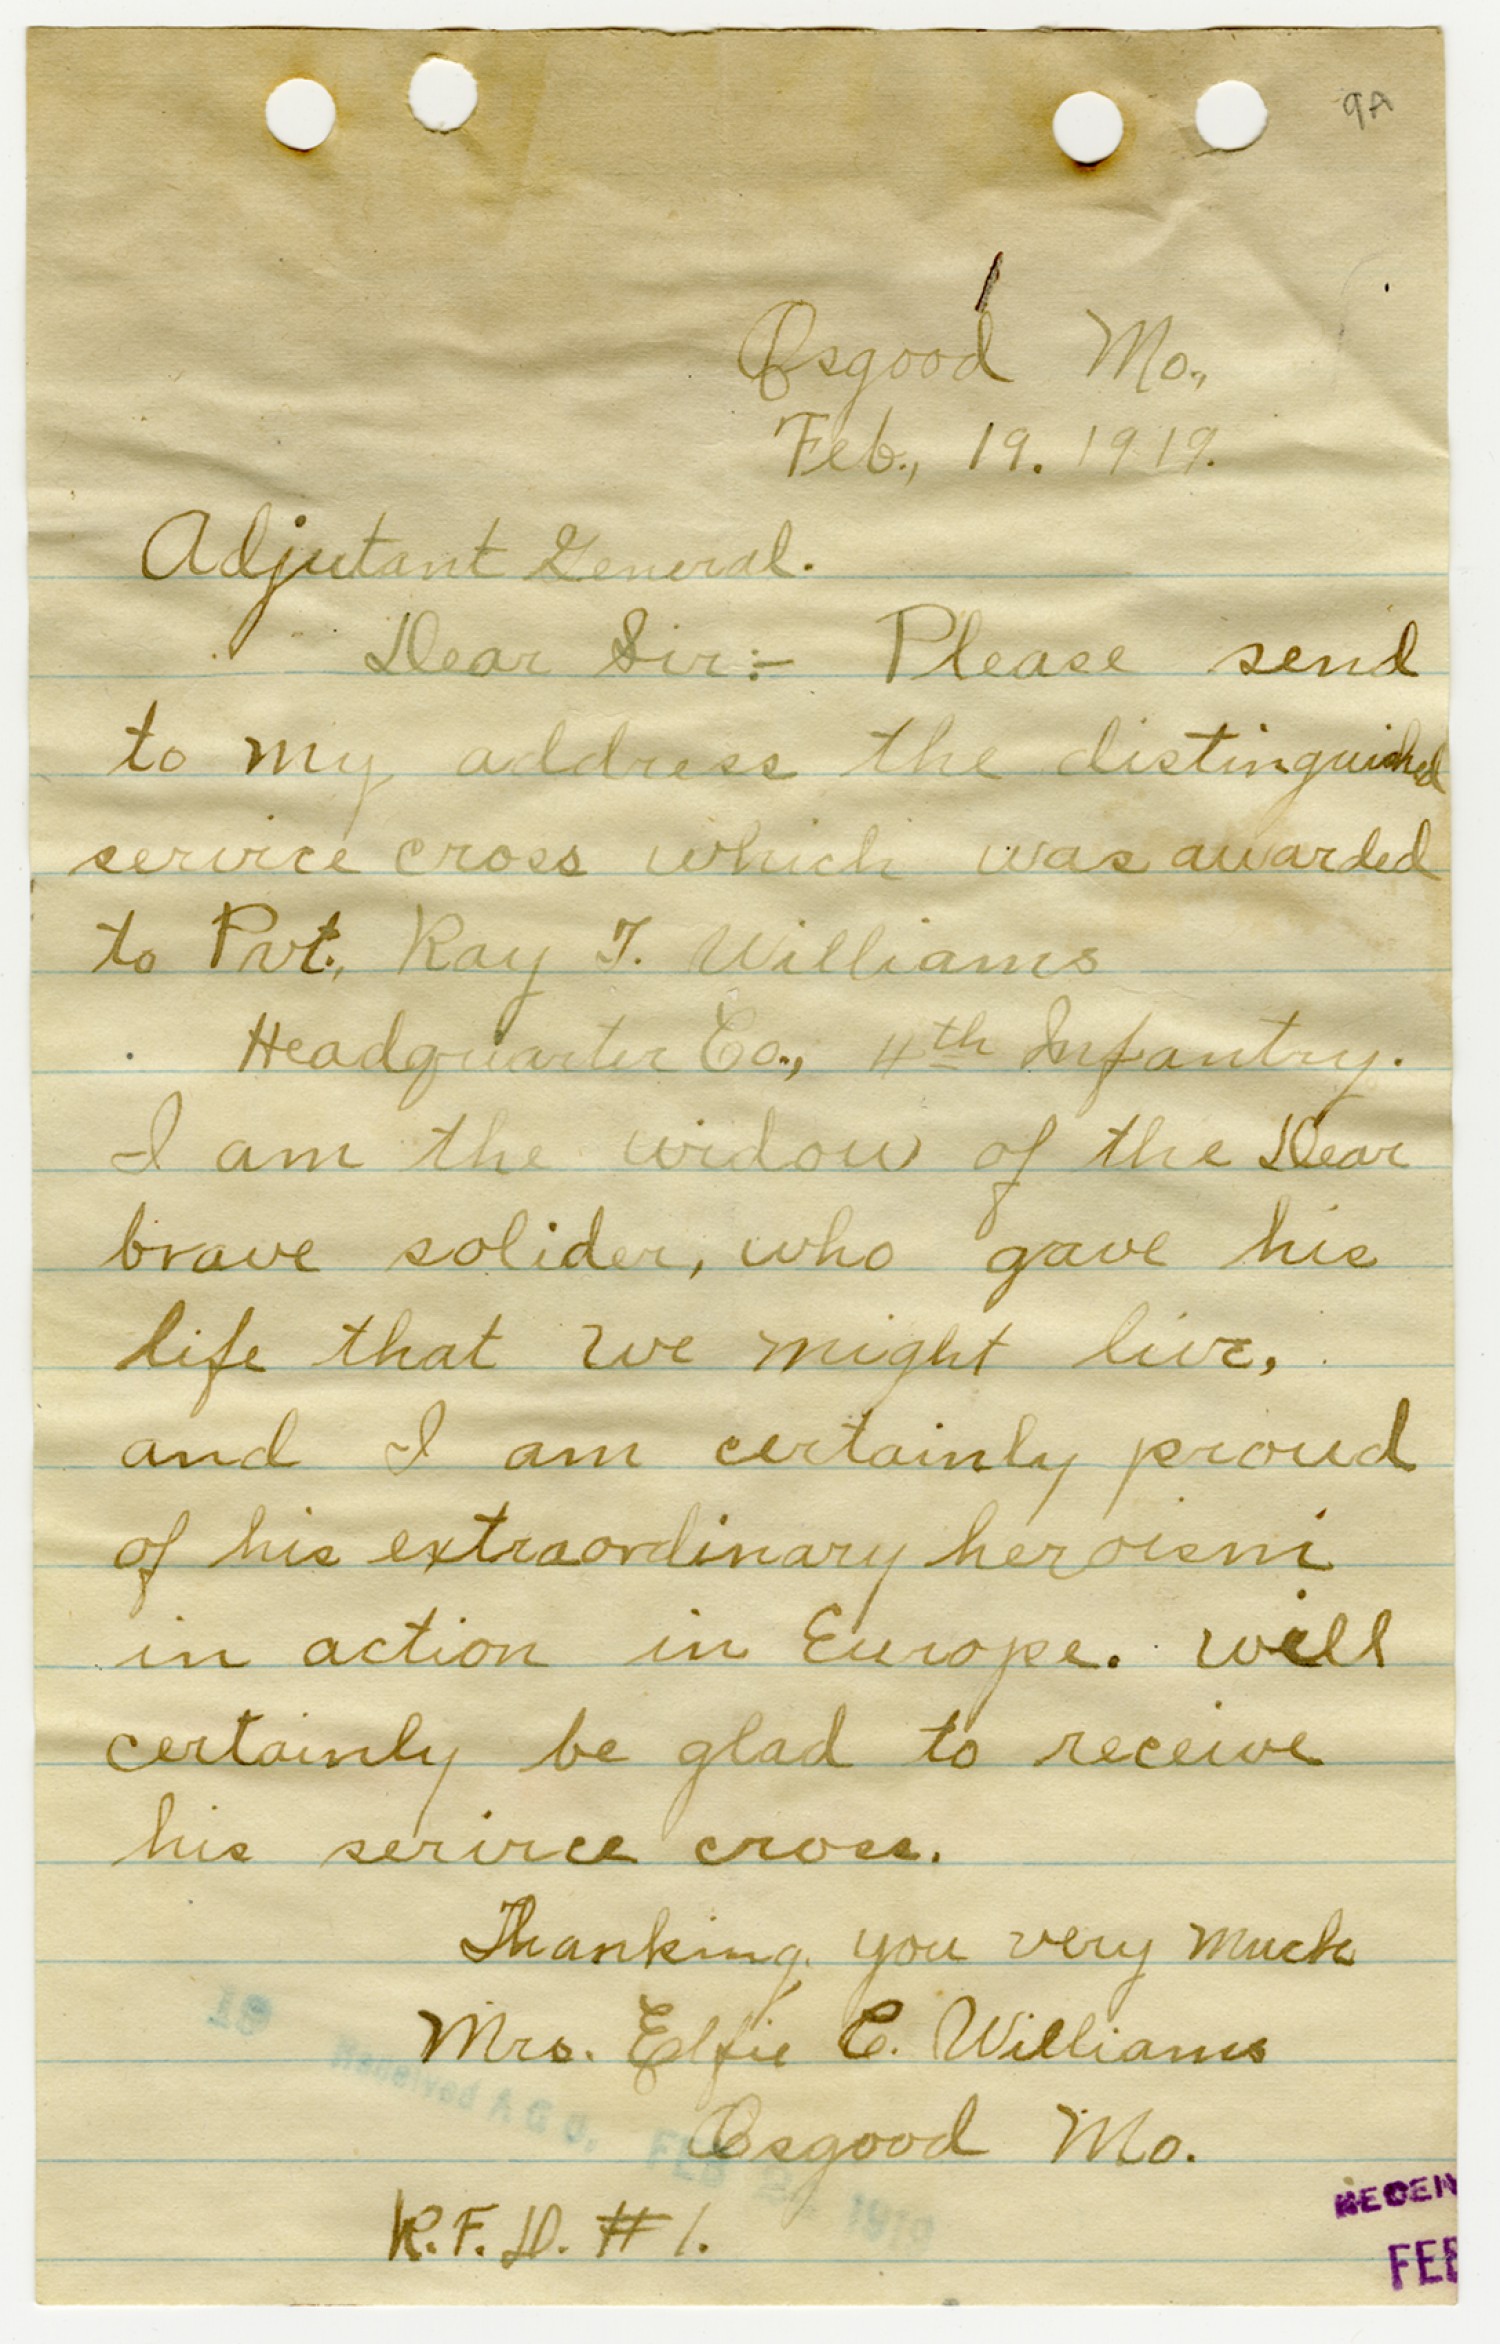 9A
Osgood Mo.,
Feb., 19. 1919.
Adjutant General.
Dear Sir:- Please send
to my address the distinguished
service cross which was awarded
to Pvt., Ray T. Williams
Headquarter Co., 4th Infantry.
I am the widow of the Dear
brave solider, who gave his
life that we might live,
and I am certainly proud
of his extraordinary heroism
in action in Europe. Will
certainly be glad to receive
his service cross.
Thanking you very much
Mrs. Effie C. Williams
Osgood Mo.
R.F.D. #1.
19 Received A G O, FEB 1919
FEB